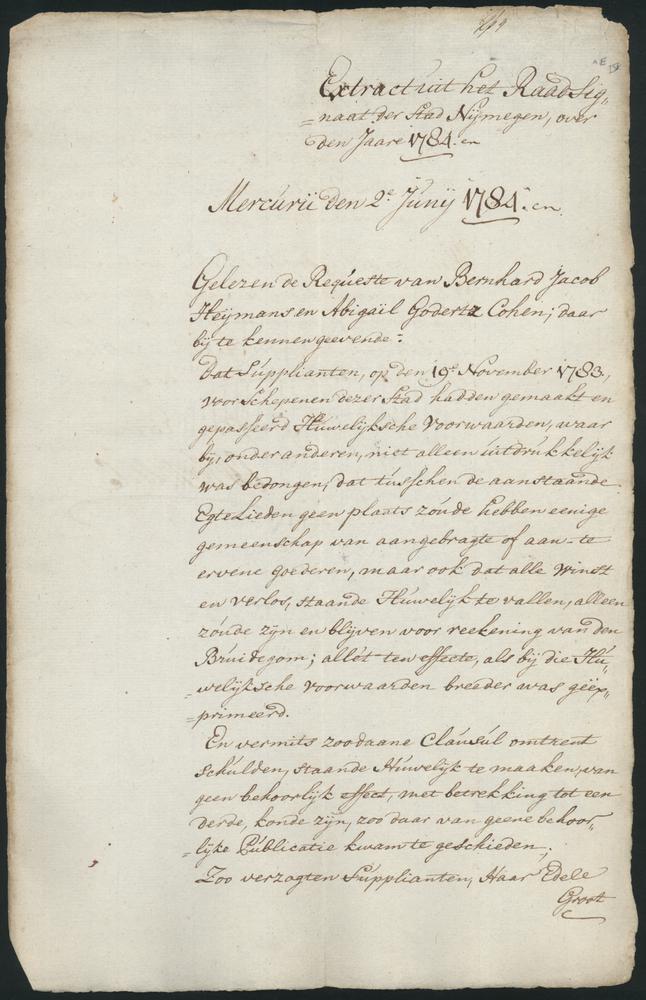 Extract uit het Raadsig„
=naat der Stad Nijmegen, over
den Jaare 1784.en
Mercurii den 2e Junij 1784.en
Gelezen de Requeste van Bernhard Jacob
Heijmans en Abigaïl Godertz Cohen; daar
bij te kennen geevende:
Dat Supplianten, op den 19e November 1783,
voor Schepenen dezer Stad hadden gemaakt en
gepasseerd Huwelijksche Voorwaarden, waar
bij, onder anderen, niet alleen uitdrukkelijk
was bedongen, dat tusschen de aanstaande
Egtelieden geen plaats zoude hebben eenige
gemeenschap van aangebragte of aan-te
ervene goederen, maar ook dat alle winst
en verlos, staande Huwelijk te vallen, alleen
zoude zijn en blijven voor reekening van den
Bruidegom; allet ten effecte, als bij die Hu„
=welijksche voorwaarden breeder was geëx„
=primeerd.
En vermits zoodaane Clausul omtrent
schulden, staande Huwelijk te maaken, van
geen behoorlijk effect, met betrekking tot een
derde, konde zijn, zoo daar van geene behoor„
=lijke Publicatie kwam te geschieden;
Zoo verzogten Supplianten, Haar Edele
Groot